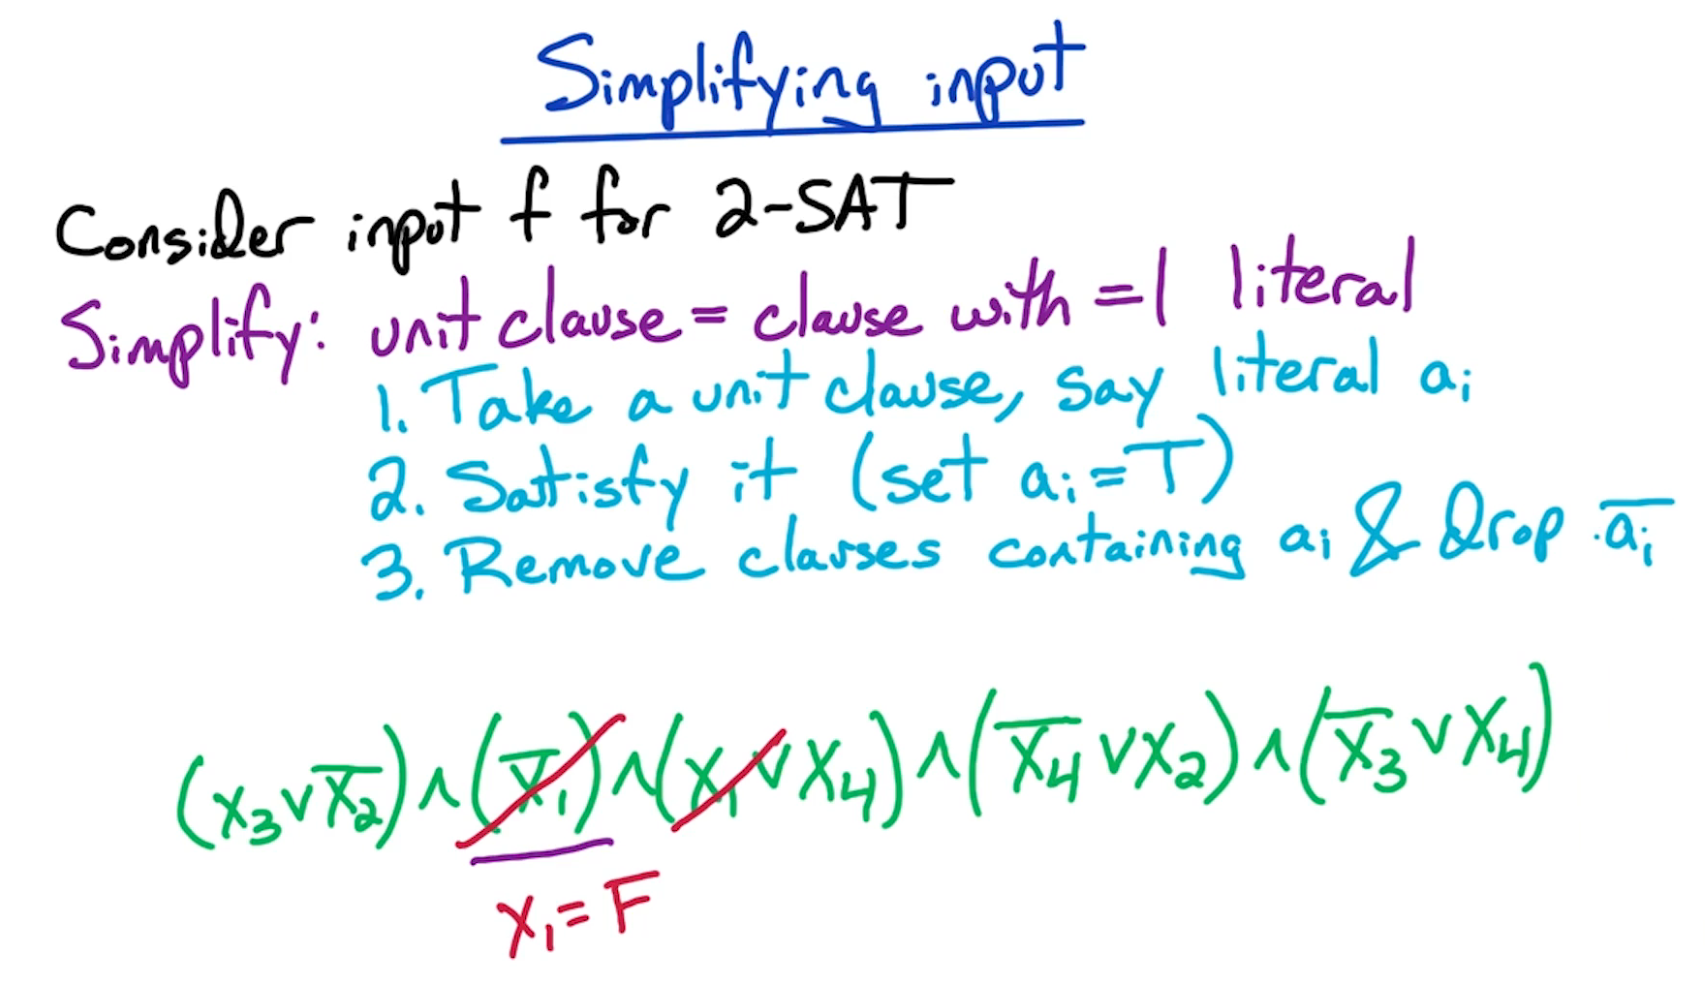 Simplifying input
Consider input f for 2-SAT
Simplify: unit clause = clause with =1 literal
1. Take a unit clause, say literal aᵢ
2. Satisfy it (set aᵢ=T)
3. Remove clauses containing aᵢ & Drop a̅ᵢ
(x₃∨x̅₂)∧(x̅₁)∧(x₁∨x₄)∧(x̅₄∨x₂)∧(x̅₃∨x₄)
x₁=F